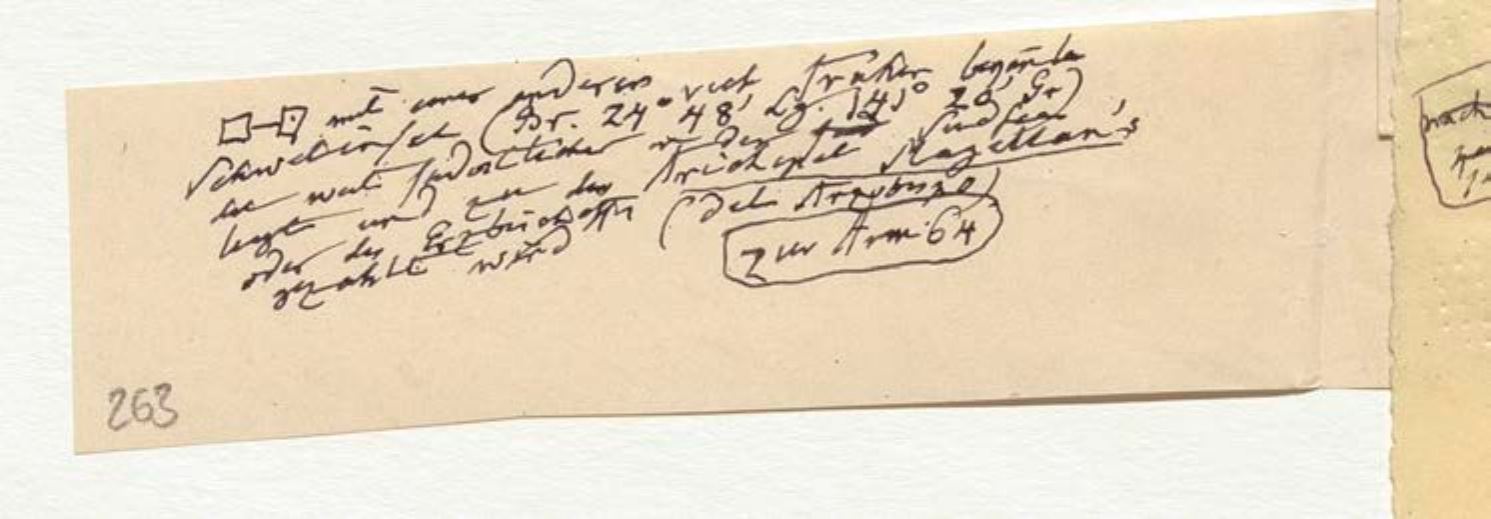 mit einer anderen viel früher
Schwefelinsel (Br. 24° 48', Lg. 141° 20' Gr)
die weit südöstlicher in der Südsee
liegt und zu dem Archipel Magellan's
oder des Erzbischoffs (del Arzobispo)
gezählt wird
zur Anm. 64
263